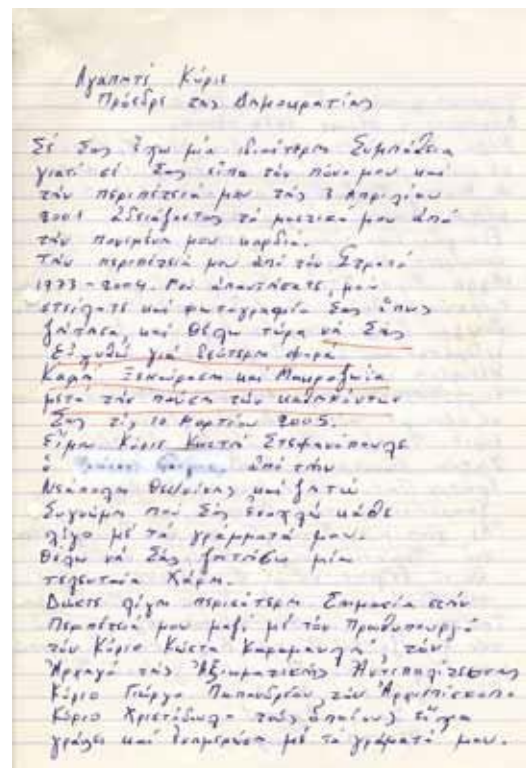 Αγαπητέ Κύριε
Πρόεδρε της Δημοκρατίας
Σέ Σας έχω μία ιδιαίτερη Συμπάθεια
γιατί σέ Σας είπα τόν πόνο μου καί
τήν περιπέτειά μου τής 3 Απριλίου
2001 αδειάζοντας τά μυστικά μου από
τήν πονεμένη μου καρδιά.
Τήν περιπέτειά μου από τόν Στρατό
1973-2004. Μου απαντήσατε, μου
στείλατε καί φωτογραφία Σας όπως
ζήτησα, καί θέλω τώρα νά Σάς
Ευχηθώ γιά δεύτερη φορά
Καλή Ξεκούραση καί Μακροζωία
μετά τήν παύση τών καθηκόντων
Σας τίς 10 Μαρτίου 2005.
Είμαι Κύριε Κωστή Στεφανόπουλε
ό από τήν
Νεάπολη Θεσ/νίκης καί ζητώ
Συγνώμη πού Σάς ενοχλώ κάθε
λίγο μέ τά γράμματά μου.
Θέλω νά Σάς ζητήσω μία
τελευταία Χάρη.
Δώστε λίγη περισότερη Σημασία στήν
Περιπέτειά μου μαζί μέ τόν Πρωθυπουργό
τόν Κύριο Κώστα Καραμανλή, τόν
Αρχηγό τής Αξιωματικής Αντιπολίτευσης
Κύριο Γιώργο Παπανδρέου, τόν Αρχιεπίσκοπο
Κύριο Χριστόδουλο τούς οποίους είχα
γράψει καί ενημερώσει μέ τά γράματά μου.